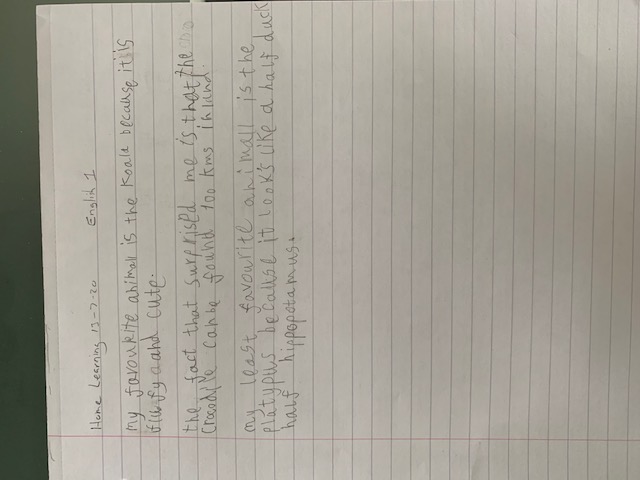 Home Learning 13-7-20 English 1
my favourite animall is the Koala because it is
fluffy and cute.
the fact that surprised me is that the
crocodile canbe found 100 kms inland.
my least favourite animall is the
platypus because it looks like a half duck
half hippopotamus.